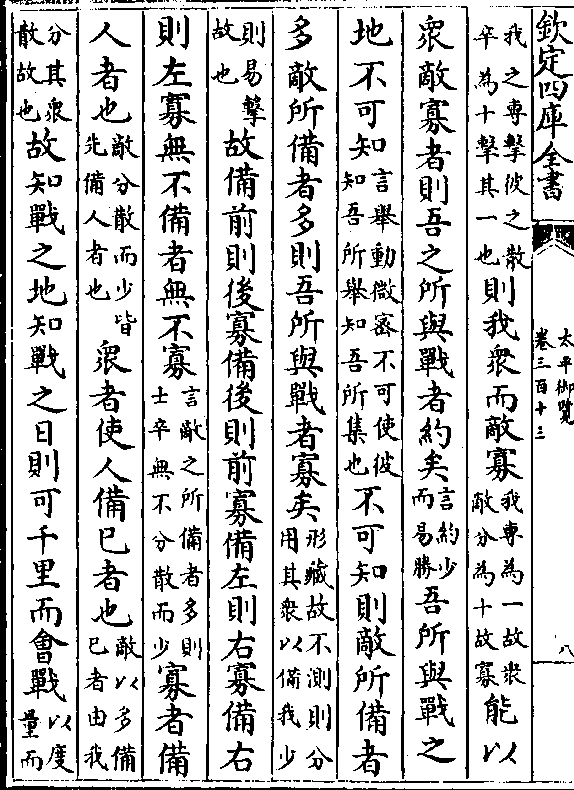 欽定四庫全書
太平御覽
卷三百十三
八
我之專擊彼之散
卒為十擊其一也
則我衆而敵寡
我專為一故衆
敵分為十故寡
能以
衆敵寡者則吾之所與戰者約矣
言約少
而易勝
吾所與戰之
地不可知
言舉動微密不可使彼
知吾所舉知吾所集也
不可知則敵所備者
多敵所備者多則吾所與戰者寡矣
形藏故不測則分
用其衆以備我少
則易擊
故也
故備前則後寡備後則前寡備左則右寡備右
則左寡無不備者無不寡
言敵之所備者多則
士卒無不分散而少
寡者備
人者也
敵分散而少皆
先備人者也
衆者使人備已者也
敵以多備
已者由我
分其衆
散故也
故知戰之地知戰之日則可千里而會戰
以度
量而